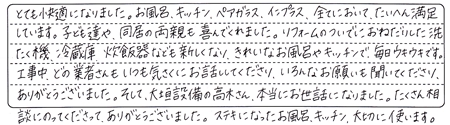 とても快適になりました。お風呂、キッチン、ペアガラス、インプラス、全てにおいて、たいへん満足
しています。子ども達や、同居の両親も喜んでくれました。リフォームのついでにおねだりした洗
たく機、冷蔵庫 炊飯器なども新しくなり、きれいなお風呂やキッチンで、毎日ウキウキです。
工事中、どの業者さんもいつも気さくにお話してくださり、いろんなお願いも聞いてくださり、
ありがとうございました。そして、大垣設備の高木さん、本当にお世話になりました。たくさん相
談にのってくださって、ありがとうございました。ステキになったお風呂、キッチン、大切に使います。